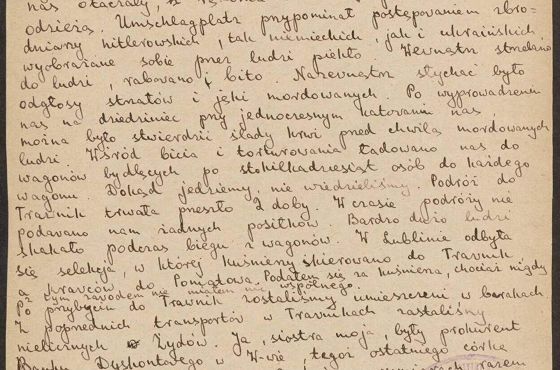 nas otaczały,
odzieżą. Umschlagplatz przypominał postępowaniem zbro-
dniarzy hitlerowskich, tak niemieckich, jak i ukraińskich,
wyobrażane sobie przez ludzi piekło. Wewnątrz strzelano
do ludzi, rabowano i bito. Nazewnątrz słychać było
odgłosy strzałów i jęki mordowanych. Po wyprowadzeniu
nas na dziedziniec przy jednoczesnym katowaniu nas,
można było stwierdzić ślady krwi przed chwilą mordowanych
ludzi. Wśród bicia i torturowania ładowano nas do
wagonów bydlęcych po stokilkadziesiąt osób do każdego
wagonu. Dokąd jedziemy, nie wiedzieliśmy. Podróż do
Trawnik trwała przeszło 2 doby. W czasie podróży nie
podawano nam żadnych posiłków. Bardzo dużo ludzi
skakało podczas biegu z wagonów. W Lublinie odbyła
się selekcja, w której kuśnierzy skierowano do Trawnik
a krawców do Poniatowa. Podałem się za kuśnierza, chociaż nigdy
z tym zawodem nie miałem nic wspólnego.
Po przybyciu do Trawnik zostaliśmy umieszczeni w barakach
Z poprzednich transportów w Trawnikach zastaliśmy
nielicznych Żydów. Ja, siostra moja, były prokurent
Banku Dyskontowego w W-wie, tegoż ostatniego córka
razem